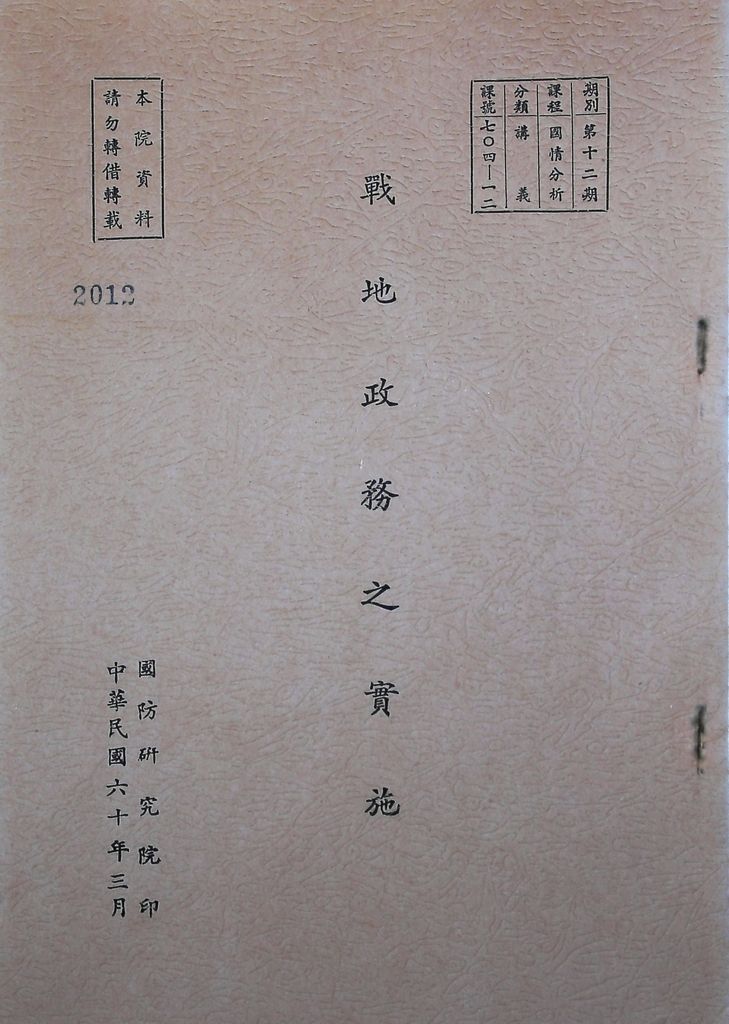 期別 第十二期
課程 國情分析
分類 講義
課號 七〇四—一二
戰地政務之實施
本院資料
請勿轉借轉載
2012
國防研究院印
中華民國六十年三月